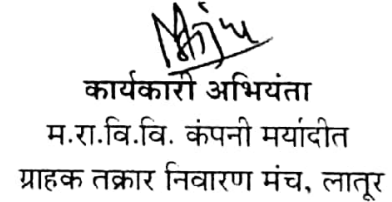 कार्यकारी अभियंता
म.रा.वि.वि. कंपनी मर्यादीत
ग्राहक तक्रार निवारण मंच, लातूर